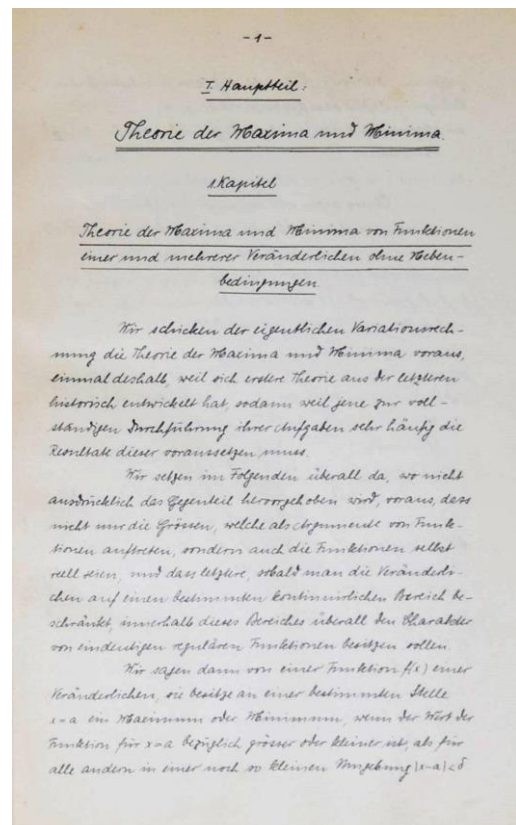 -1-
I. Hauptteil:
Theorie der Maxima und Minima.
1. Kapitel
Theorie der Maxima und Minima von Funktionen
einer und mehrerer Veränderlichen ohne Neben-
bedingungen.
Wir schicken der eigentlichen Variationsrech-
nung die Theorie der Maxima und Minima voraus,
einmal deshalb, weil sich erstere Theorie aus der letzteren
historisch entwickelt hat, sodann weil jene zur voll-
ständigen Durchführung ihrer Aufgaben sehr häufig die
Resultate dieser voraussetzen muss.
Wir setzen im Folgenden überall da, wo nicht
ausdrücklich das Gegenteil hervorgehoben wird, voraus, dass
nicht nur die Grössen, welche als Argumente von Funk-
tionen auftreten, sondern auch die Funktionen selbst
reell seien, und dass letztere, sobald man die Veränderli-
chen auf einen bestimmten kontinuirlichen Bereich be-
schränkt, innerhalb dieses Bereiches überall den Charakter
von eindeutigen regulären Funktionen besitzen sollen.
Wir sagen dann von einer Funktion f(x) einer
Veränderlichen, sie besitze an einer bestimmten Stelle
x=a ein Maximum oder Minimum, wenn der Wert der
Funktion für x=a bezüglich grösser oder kleiner ist, als für
alle andern in einer noch so kleinen Umgebung |x-a|<δ